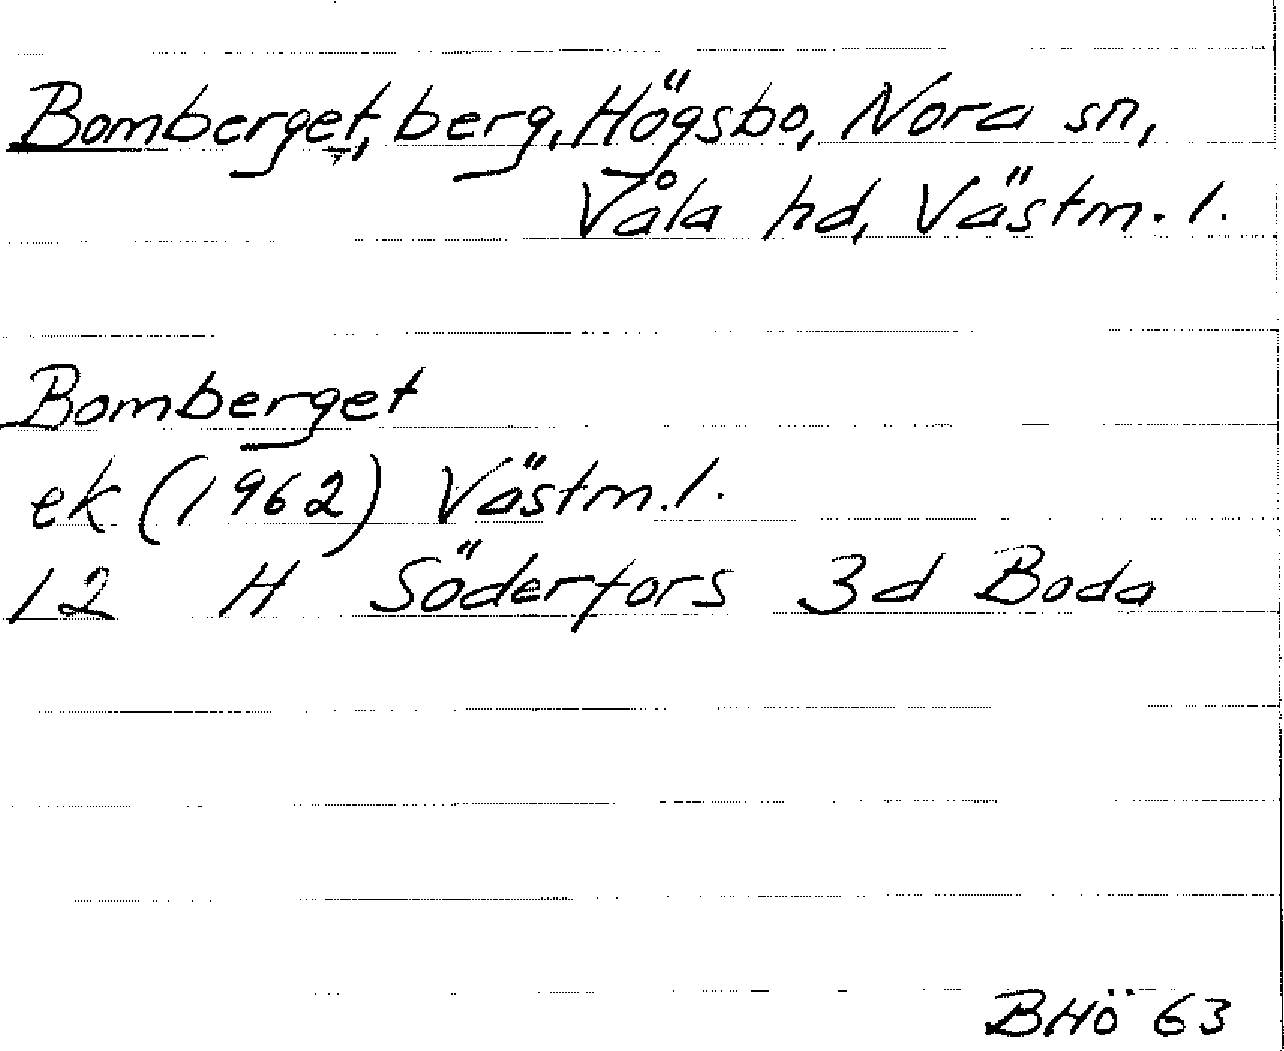 Bomberget, berg, Högsbo, Nora sn,
Våla hd, Västm. l.
Bomberget
ek (1962) Västm. l.
12 H Söderfors 3d Boda
BHÖ 63